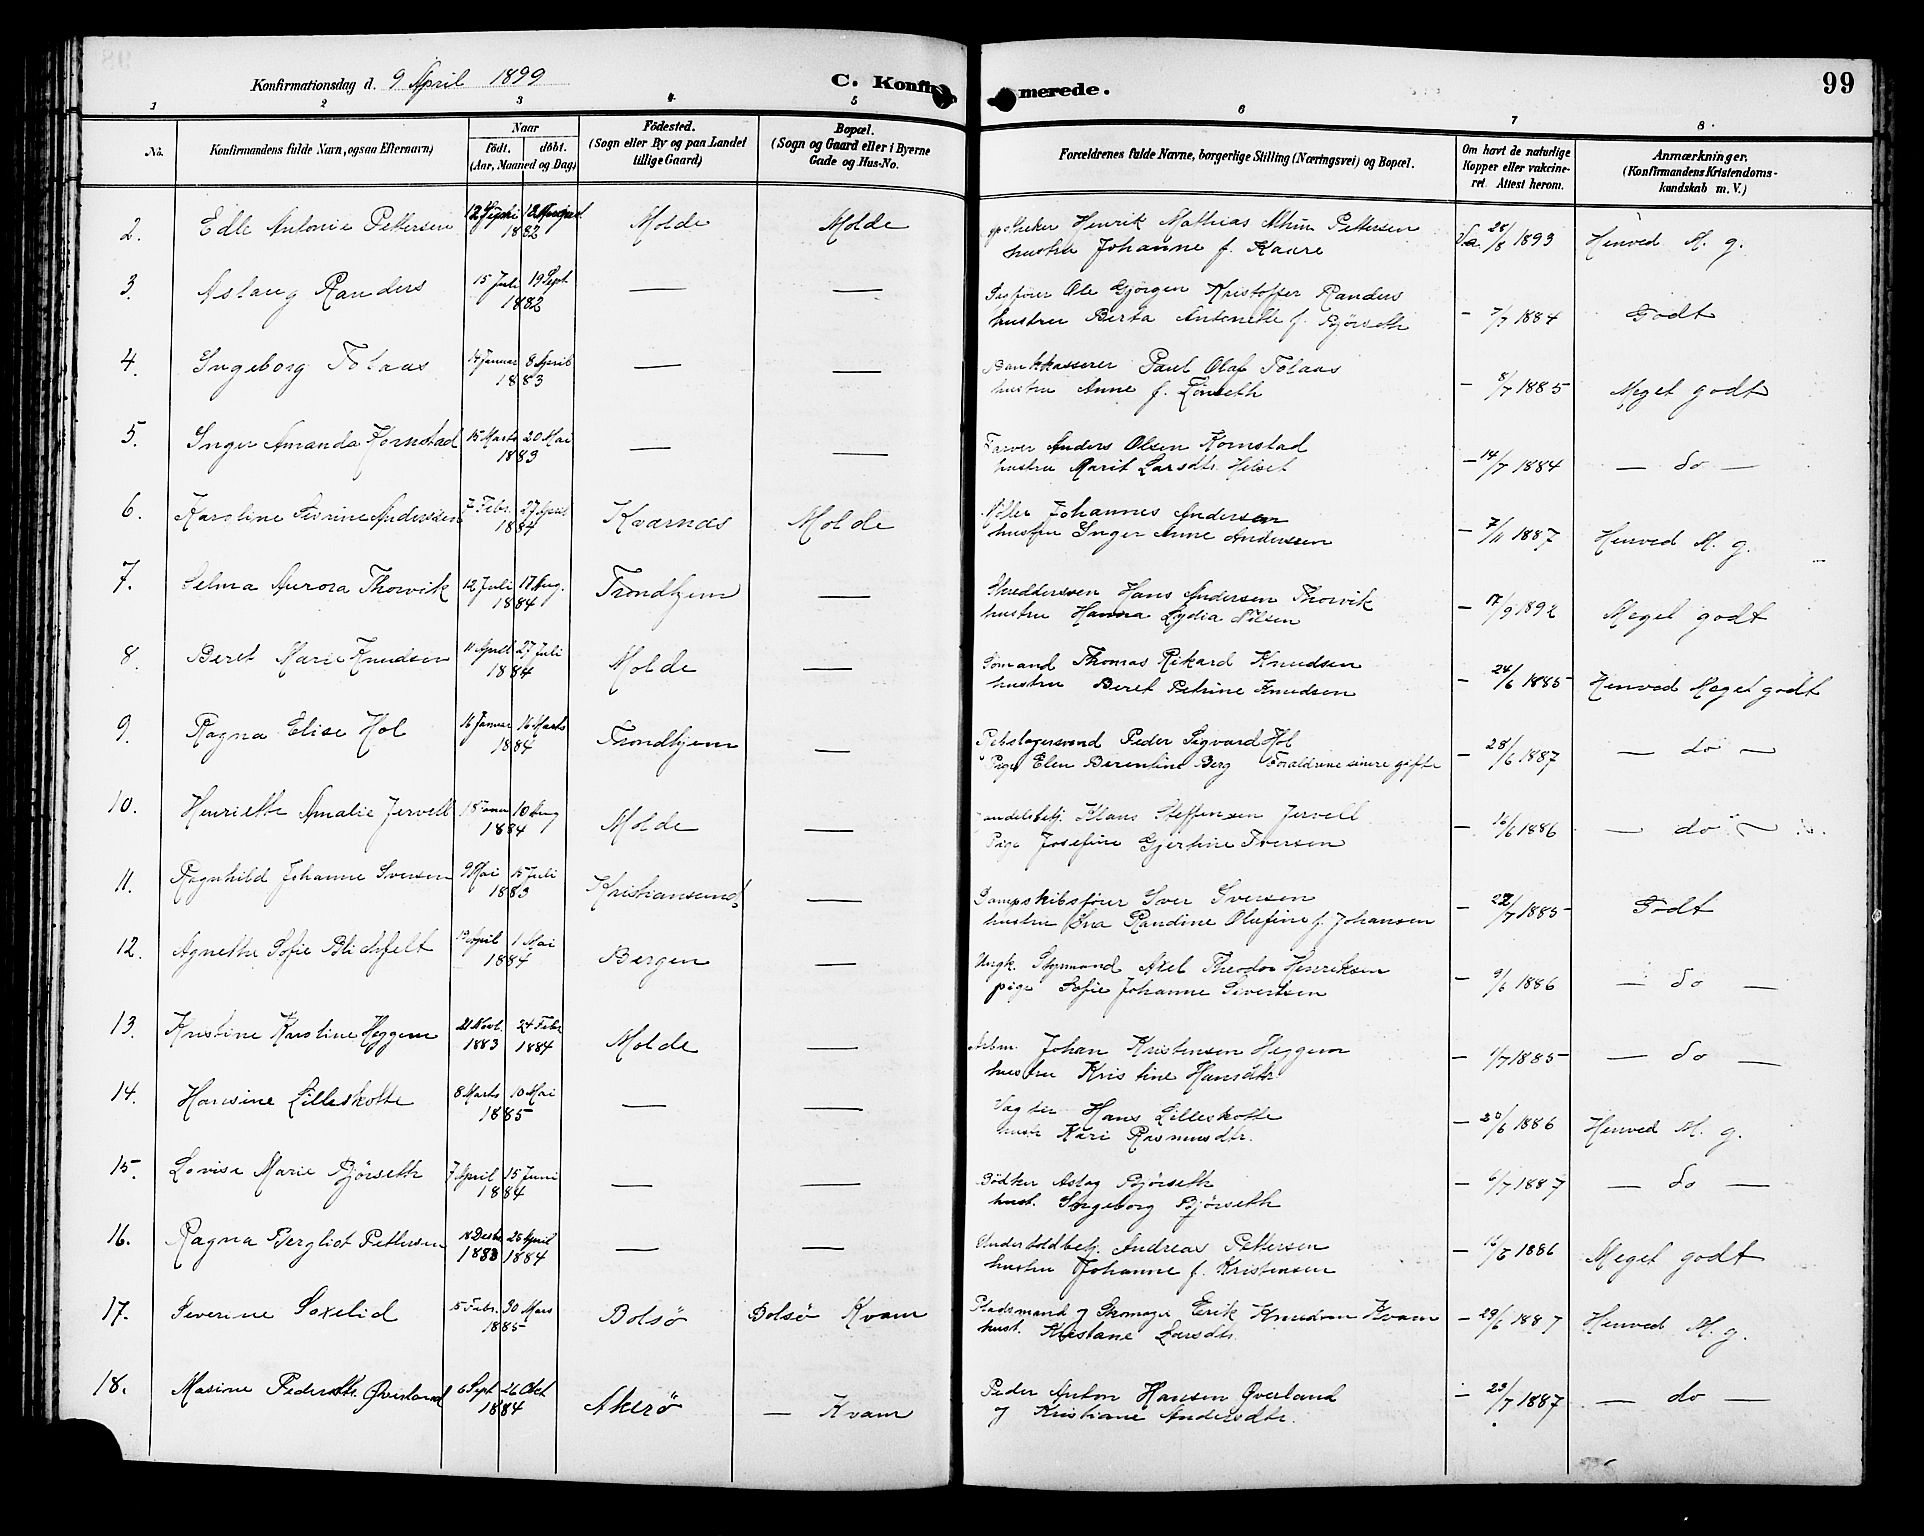 Konfirmationsdag d. 9 April 1899
C. Konfirmerede.
99
1 2 3 4 5 6 7 8
No. Konfirmandens fulde Navn, ogsaa Efternavn) Naar födt. döbt. (Aar, Maaned og Dag) Födested. (Sogn eller By og paa Landet tillige Gaard) Bopæl. (Sogn og Gaard eller i Byerne Gade og Hus-No. Forældrenes fulde Navne, borgerlige Stilling (Næringsvei) og Bopæl. Om havt de naturlige Kopper eller vakcineret. Attest herom. Anmærkninger. (Konfirmandens Kristendomskundskab m. V.)
2. Edle Antonie Pettersen 1882 Molde Molde Henrik Mathias Pettersen Va. 28/8 1893 Henved M. g.
hustru Johanne f. Kaare
3. Aslaug Randers 15 Juli 19 Sept 1882 — — Ole Gjørgen Kristoffer Randers — 7/7 1884 Godt
hustru Berta Antonette f. Bjørseth
4. Ingeborg Tolaas Januar 8 April 1883 — — Bankkasserer Paul Olaf Tolaas — 8/7 1885 Meget godt
hustru Anne f.
5. Inger Amanda Kornstad 15 Marts 20 Mai 1883 — — Farver Anders Olsen Kornstad — 14/7 1884 — do —
hustru Marit Larsdtr. Helset
6. Karoline Andersen 7 Febr. 27 April 1884 Kværnæs Molde Møller Johannes Andersen — 7/11 1887 Henved M. g.
hustru Inger Anne Anderssen
7. Selma Aurora Thorvik 12 Juli 17 Aug. 1884 Trondhjem — Skreddersven Hans Andersen Thorvik — 17/9 1892 Meget godt
hustru Hanna Lydia Nilsen
8. Beret Marie Knudsen 11 April 27 Juli 1884 Molde — Sømand Thomas Rikard Knudsen — 24/6 1885 Henved Meget godt
hustru Beret Petrine Knudsen
9. Ragna Elise Hol 16 Januar 16 Marts 1884 Trondhjem — Peder Sigvard Hol — 28/6 1887 — do —
Pige Elen Berentine Berg Forældrene senere gifte
10. Henriette Amalie Jervell 10 Aug 1884 Molde — Handelsbetj. Klaus Steffensen Jervell — 16/6 1886 — do —
Pige Josefine Gjertine Iversen
11. Ragnhild Johanne Iversen 9 Mai 15 Juli 1883 Kristiansund — Dampskibsfører Iver Iversen — 22/7 1885 Godt
hustru Randine Olufine f. Johansen
12. Agnethe Sofie Blichfelt April 1 Mai 1884 Bergen — Ungk. Styrmand Axel Theodor Henriksen — 9/6 1886 — do —
pige Sofie Johanne Sivertsen
13. Kristine Karoline Heggem 21 Novb. 1883 24 Febr 1884 Molde — Arbm. Johan Kristensen Heggem — 1/7 1885 — do —
hustru Kristine Hansdtr
14. Hansine Lilleskotte 8 Marts 10 Mai 1885 — — Vagter Hans Lilleskotte — 20/6 1886 Henved M. g.
hustr Kari Rasmusdtr.
15. Lovise Marie Bjørseth 7 April 15 Juni 1884 — — Bødker Aslag Bjørseth — 6/7 1887 — do —
hust. Ingeborg Bjørseth
16. Ragna Bergliot Pettersen 18 Decbr 1883 25 April 1884 — — Underholdbetj. Andreas Pettersen — 16/6 1886 Meget godt
hustru Johanne f. Kristensen
17. Severine Soxelid 15 Febr. 30 Mars 1885 Bolsø Bolsø Kvam Pladsmand og Skomager Erik Knudsen Kvam — 29/6 1887 Henved M. g.
hust. Kristane Larsdtr.
18. Masine Pedersdtr. Øverland 6 Sept 26 Okt 1884 Akerø — Kvam Peder Anton Hansen Øverland — 23/7 1887 — do —
og Kristiane Andersdtr.